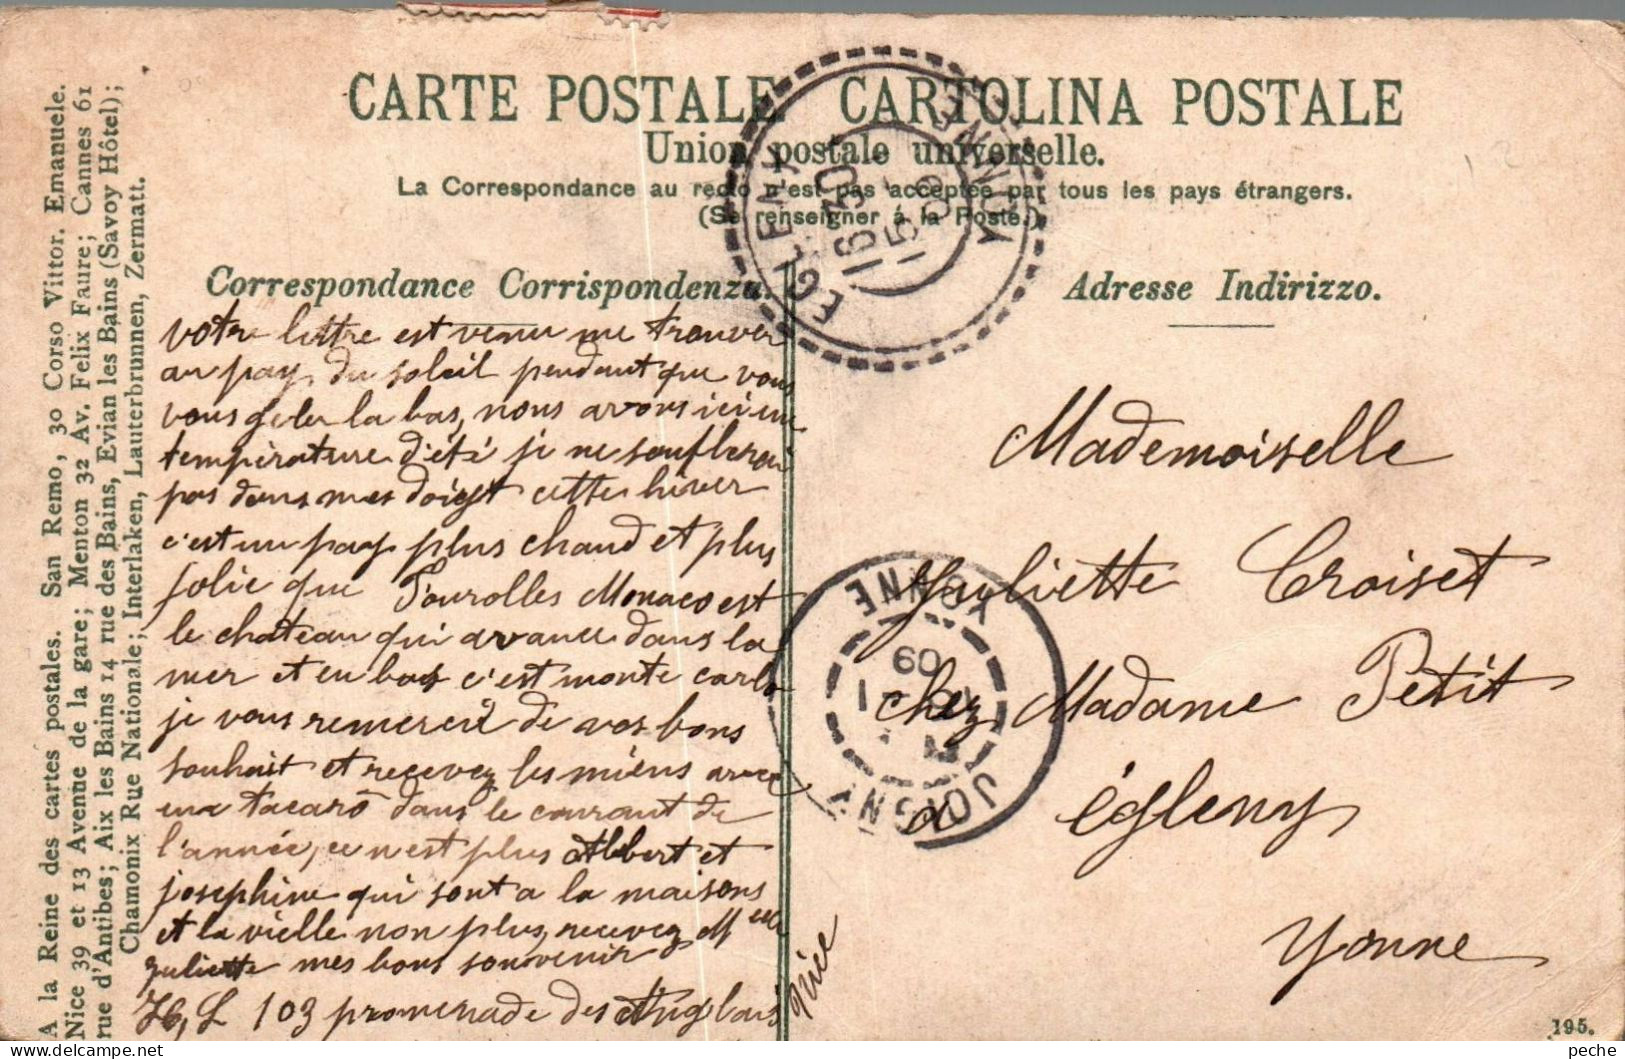 CARTE POSTALE CARTOLINA POSTALE
Union postale universelle.
La Correspondance au recto n'est pas acceptée par tous les pays étrangers.
(Se renseigner à la Poste.)
Correspondance Corrispondenza.
Adresse Indirizzo.
votre lettre est venue me trouver
au pay du soleil pendant que vous
vous geler la bas, nous avons ici une
température d'été je ne soufflerai
pas dans mes doigt cette hiver
c'est un pay plus chaud et plus
jolie que Monaco est
le chateau qui avance dans la
mer et en bas c'est monte carlo
je vous remercie de vos bons
souhait et recevez les miens avec
dans le courant de
l'année, ce n'est plus Albert et
josephine qui sont a la maisons
et la vielle non plus, recevez Melle
juliette mes bons souvenir
103 promenade des Anglais
Nice
Mademoiselle
Juliette Croiset
chez Madame Petit
a égleny
Yonne
EGLENY YONNE
16 30
15 1
09
JOIGNY YONNE
09
A la Reine des cartes postales. San Remo, 30 Corso Vittor. Emanuele.
Nice 39 et 13 Avenue de la gare; Menton 32 Av. Felix Faure; Cannes 61
rue d'Antibes; Aix les Bains 14 rue des Bains, Evian les Bains (Savoy Hôtel);
Chamonix Rue Nationale; Interlaken, Lauterbrunnen, Zermatt.
195.
peche